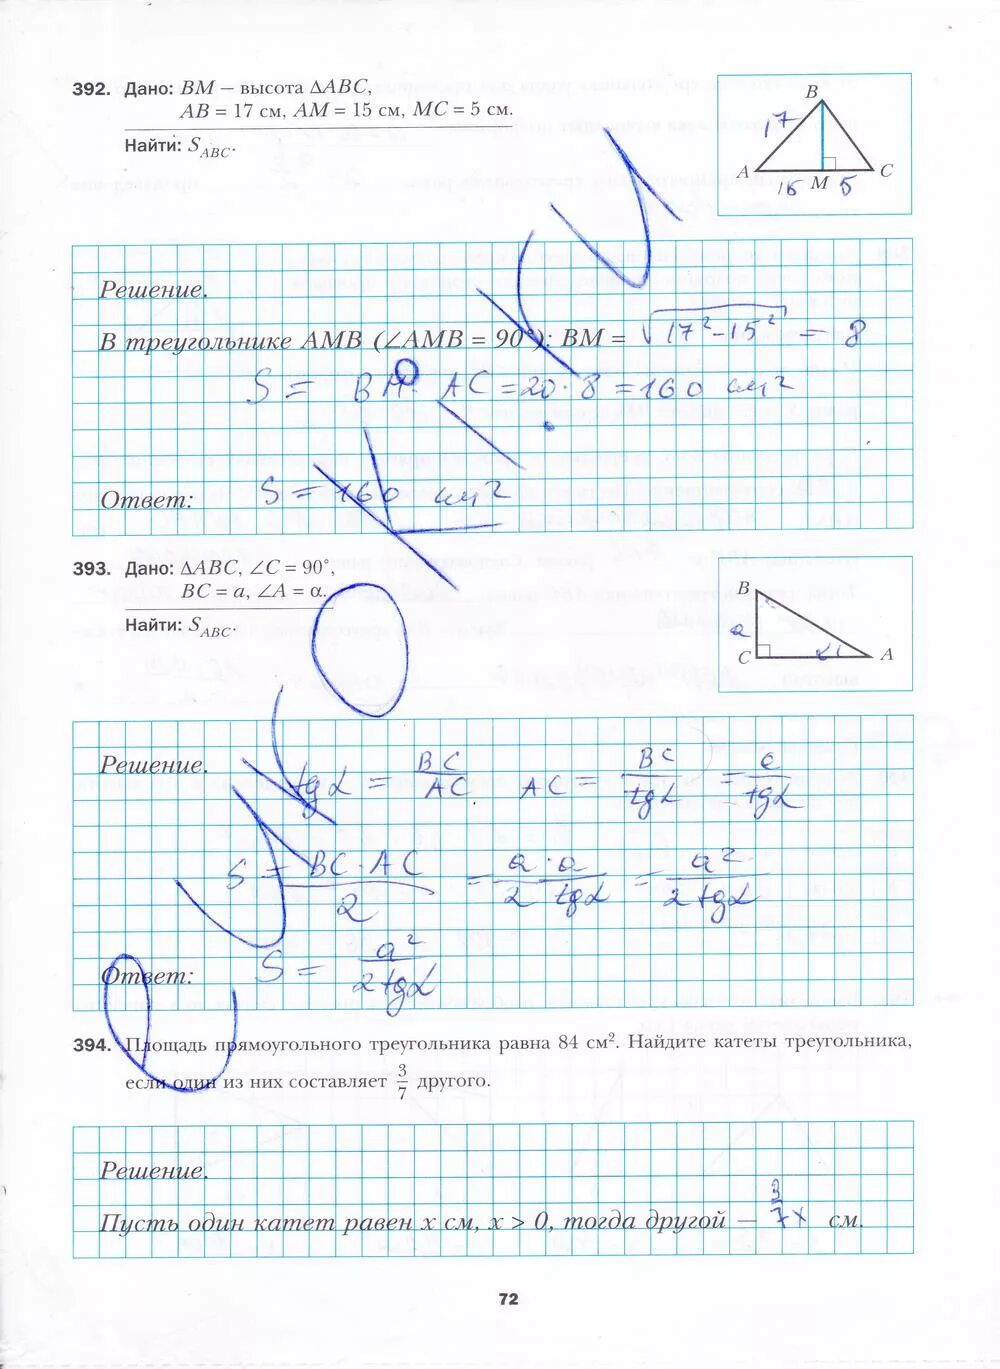 392. Дано: BM – высота ΔABC,
AB = 17 см, AM = 15 см, MC = 5 см.
Найти: S_ABC.
B
17
A
15
M
5
C
Решение.
В треугольнике AMB (∠AMB = 90°): BM = √(17² – 15²) = 8
S = BM · AC = 20 · 8 = 160 см²
Ответ: S = 160 см²
393. Дано: ΔABC, ∠C = 90°,
BC = a, ∠A = α.
Найти: S_ABC.
B
a
C
α
A
Решение. tgα = BC/AC AC = BC/tgα = a/tgα
S = BC · AC / 2 = a · a / 2 tgα = a² / 2 tgα
Ответ: S = a² / 2 tgα
394. Площадь прямоугольного треугольника равна 84 см². Найдите катеты треугольника,
если один из них составляет 3/7 другого.
Решение.
Пусть один катет равен x см, x > 0, тогда другой — 3/7 x см.
72